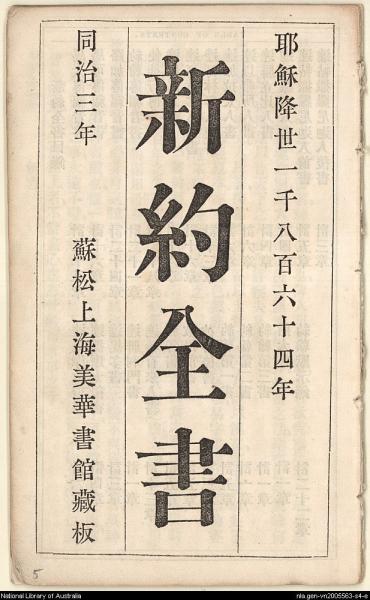 耶穌降世一千八百六十四年
新約全書
同治三年
蘇松上海美華書館藏板
5
National Library of Australia
nla.gen-vn2005563-s4-e